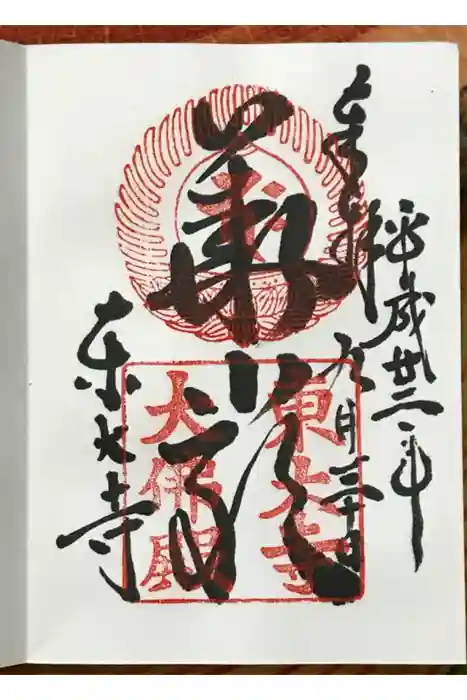 奉拝
平成廿三年
九月三十日
華厳
東大寺
東大寺
大佛殿